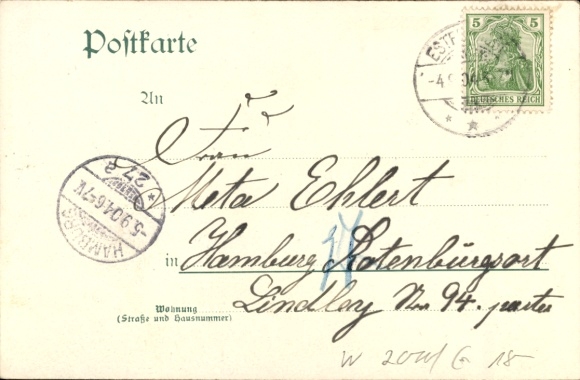 Postkarte
5 5
DEUTSCHES REICH
-4.9.04
An
Frau
Meta Ehlert
in Hamburg Rotenburgsort
Lindley Nr. 94. parter
Wohnung
(Straße und Hausnummer)
HAMBURG
-5.9.04.6-7V.
27
17
18